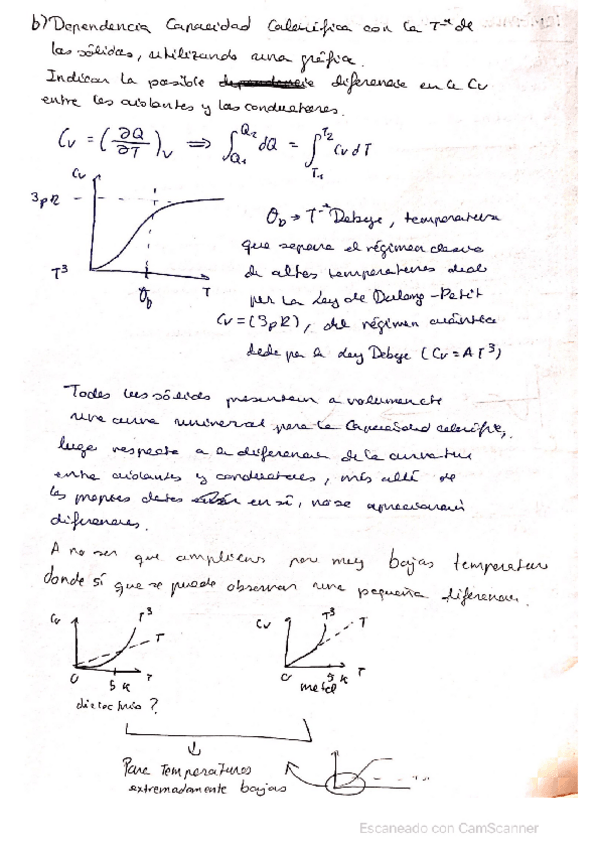 b) Dependencia Capacidad Calorífica con la Tª de
los sólidos, utilizando una gráfica.
Indicar la posible diferencia en la Cv
entre los aislantes y los conductores.
Cv = (∂Q/∂T)v ⇒ ∫Q1Q2 dQ = ∫T1T2 Cv dT
Cv
3pR
T³
θD
T
θD → Tª Debye, temperatura
que separa el régimen clásico
de altas temperaturas dado
por la Ley de Dulong-Petit
Cv = (3pR), del régimen cuántico
dado por la ley Debye (Cv = AT³)
Todos los sólidos presentan a volumen cte
una curva universal para la Capacidad calorífica,
luego respecto a la diferencia de la curvatura
entre aislantes y conductores, más allá de
los propios datos en sí, no se apreciarán
diferencias.
A no ser que ampliemos por muy bajas temperaturas
donde sí que se puede observar una pequeña diferencia.
Cv
T³
T
0
5 K
T
dieléctrico?
Cv
T³
T
0
5 K
T
metal
Para Temperaturas
extremadamente bajas
Escaneado con CamScanner